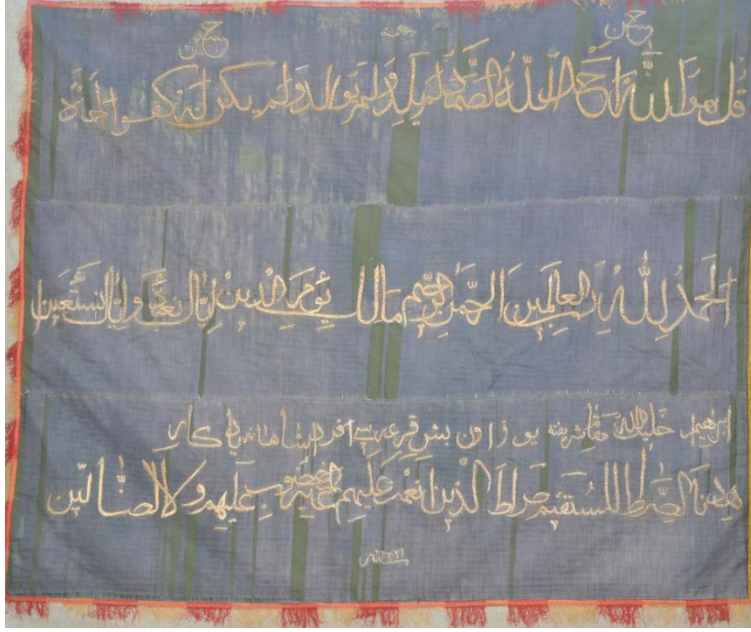 حسن حسين
قل هو الله احد الله الصمد لم يلد ولم يولد ولم يكن له كفوا احد
الحمدُ لِلّٰهِ رب العالمين الرحمن الرحيم مالك يوم الدين اياك نعبد واياك نستعين
ابراهيم خليل الله
اهدنا الصراط المستقيم صراط الذين انعمت عليهم غير المغضوب عليهم ولا الضالين
سنه